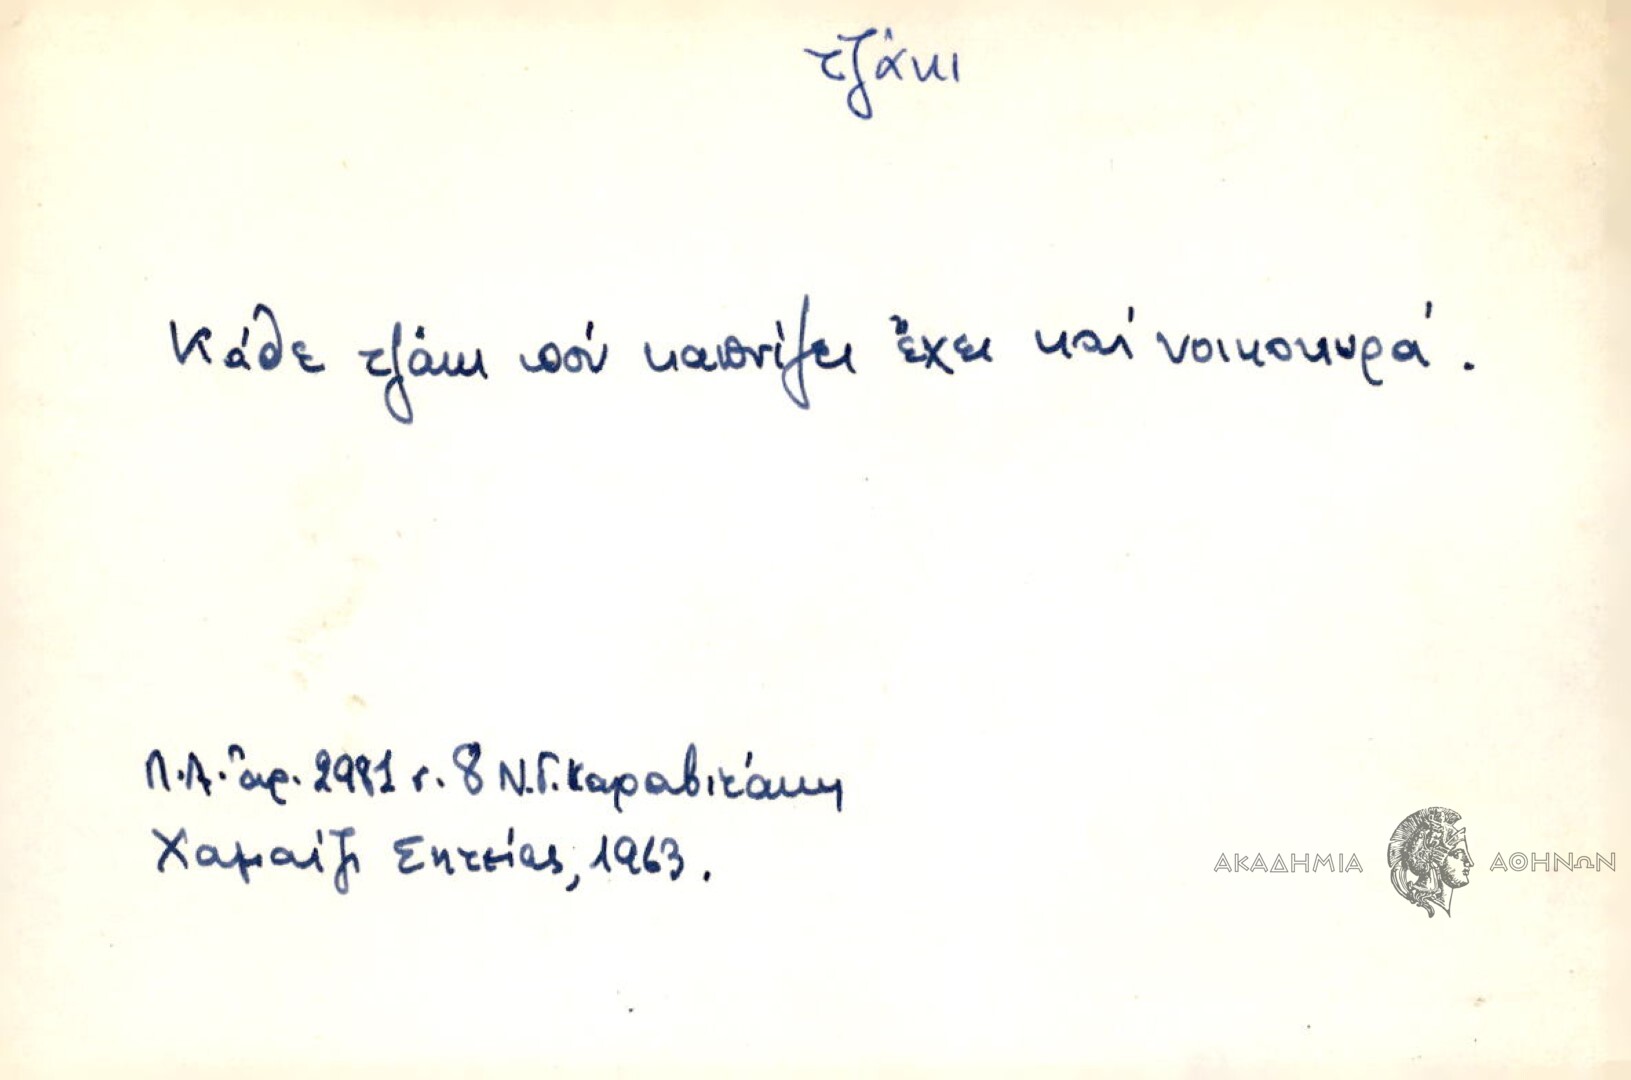 τζάκι
Κάθε τζάκι πού καπνίζει ἔχει καί νοικοκυρά.
Λ.Α. ἀρ. 2981 σ. 8 Ν.Γ. Καραβιτάκη
Χαμαίζι Σητείας, 1963.
ΑΚΑΔΗΜΙΑ ΑΘΗΝΩΝ